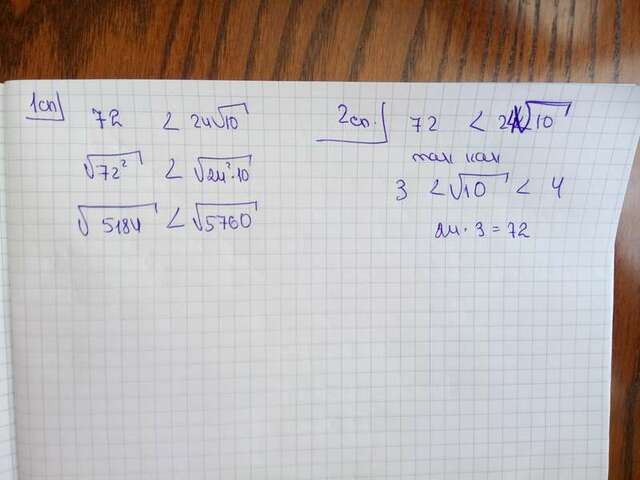 1сп
72 < 24√10
√72² < √24²·10
√5184 < √5760
2сп.
72 < 24√10
так как
3 < √10 < 4
24·3=72